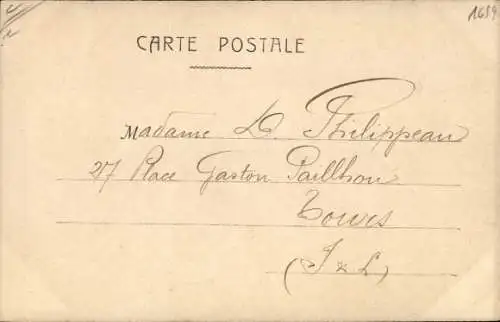 1659
CARTE POSTALE
Madame D. Philippeau
27 Place Gaston Pailhou
Tours
(I & L)